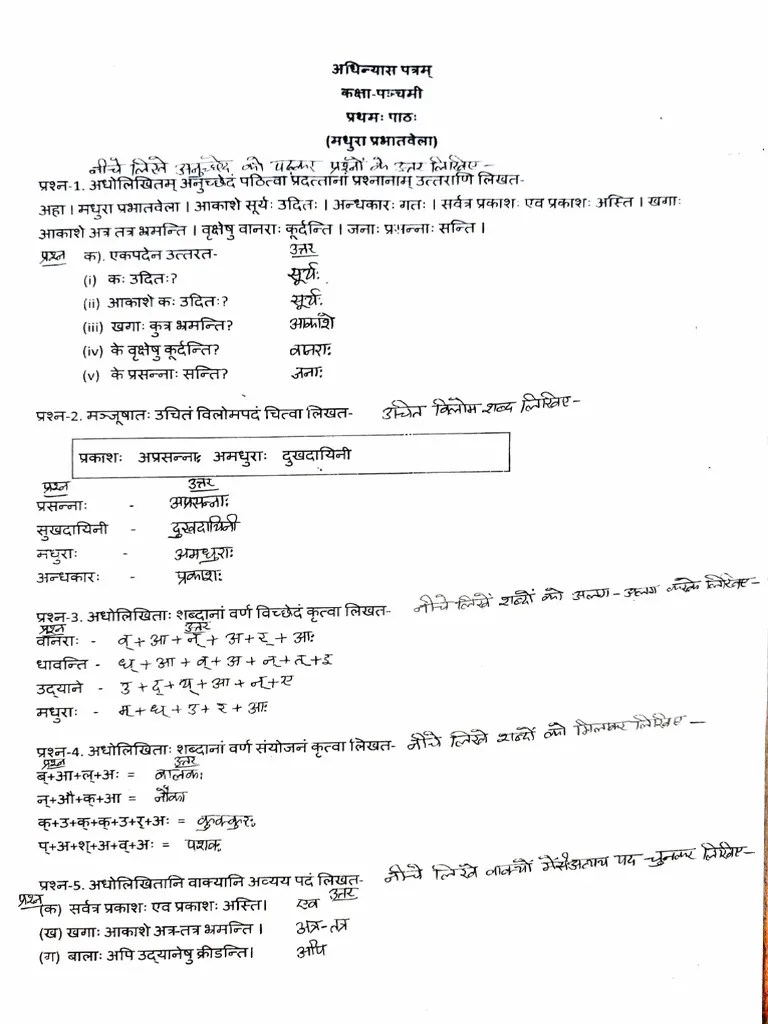 अधिन्यास पत्रम्
कक्षा-पञ्चमी
प्रथमः पाठः
(मधुरा प्रभातवेला)
नीचे लिखे अनुच्छेद को पढ़कर प्रश्नों के उत्तर लिखिए -
प्रश्न-1. अधोलिखितम् अनुच्छेदं पठित्वा प्रदत्तानां प्रश्नानाम् उत्तराणि लिखत-
अहा । मधुरा प्रभातवेला । आकाशे सूर्यः उदितः । अन्धकारः गतः । सर्वत्र प्रकाशः एव प्रकाशः अस्ति । खगाः
आकाशे अत्र तत्र भ्रमन्ति । वृक्षेषु वानराः कूर्दन्ति । जनाः प्रसन्नाः सन्ति ।
प्रश्न क). एकपदेन उत्तरत- उत्तर
(i) कः उदितः? सूर्यः
(ii) आकाशे कः उदितः? सूर्यः
(iii) खगाः कुत्र भ्रमन्ति? आकाशे
(iv) के वृक्षेषु कूर्दन्ति? वानराः
(v) के प्रसन्नाः सन्ति? जनाः
प्रश्न-2. मञ्जूषातः उचितं विलोमपदं चित्वा लिखत- उचित विलोम शब्द लिखिए -
प्रकाशः अप्रसन्नाः अमधुराः दुखदायिनी
प्रश्न उत्तर
प्रसन्नाः - अप्रसन्नाः
सुखदायिनी - दुखदायिनी
मधुराः - अमधुराः
अन्धकारः - प्रकाशः
प्रश्न-3. अधोलिखिताः शब्दानां वर्ण विच्छेदं कृत्वा लिखत- नीचे लिखें शब्दों को अलग - अलग करके लिखिए -
प्रश्न उत्तर
वानराः - व् + आ + न् + अ + र् + आः
धावन्ति - ध् + आ + व् + अ + न् + त् + इ
उद्याने - उ + द् + य् + आ + न् + ए
मधुराः - म् + ध् + उ + र + आः
प्रश्न-4. अधोलिखिताः शब्दानां वर्ण संयोजनं कृत्वा लिखत- नीचे लिखे शब्दों को मिलाकर लिखिए -
प्रश्न उत्तर
ब्+आ+ल्+अः = बालकः
न्+औ+क्+आ = नौका
क्+उ+क्+क्+उ+र्+अः = कुक्कुरः
प्+अ+श्+अ+व्+अः =
प्रश्न-5. अधोलिखितानि वाक्यानि अव्यय पदं लिखत- नीचे लिखे वाक्यों में से पद चुनकर लिखिए -
प्रश्न उत्तर
(क) सर्वत्र प्रकाशः एव प्रकाशः अस्ति। एव
(ख) खगाः आकाशे अत्र-तत्र भ्रमन्ति । अत्र-तत्र
(ग) बालाः अपि उद्यानेषु क्रीडन्ति। अपि